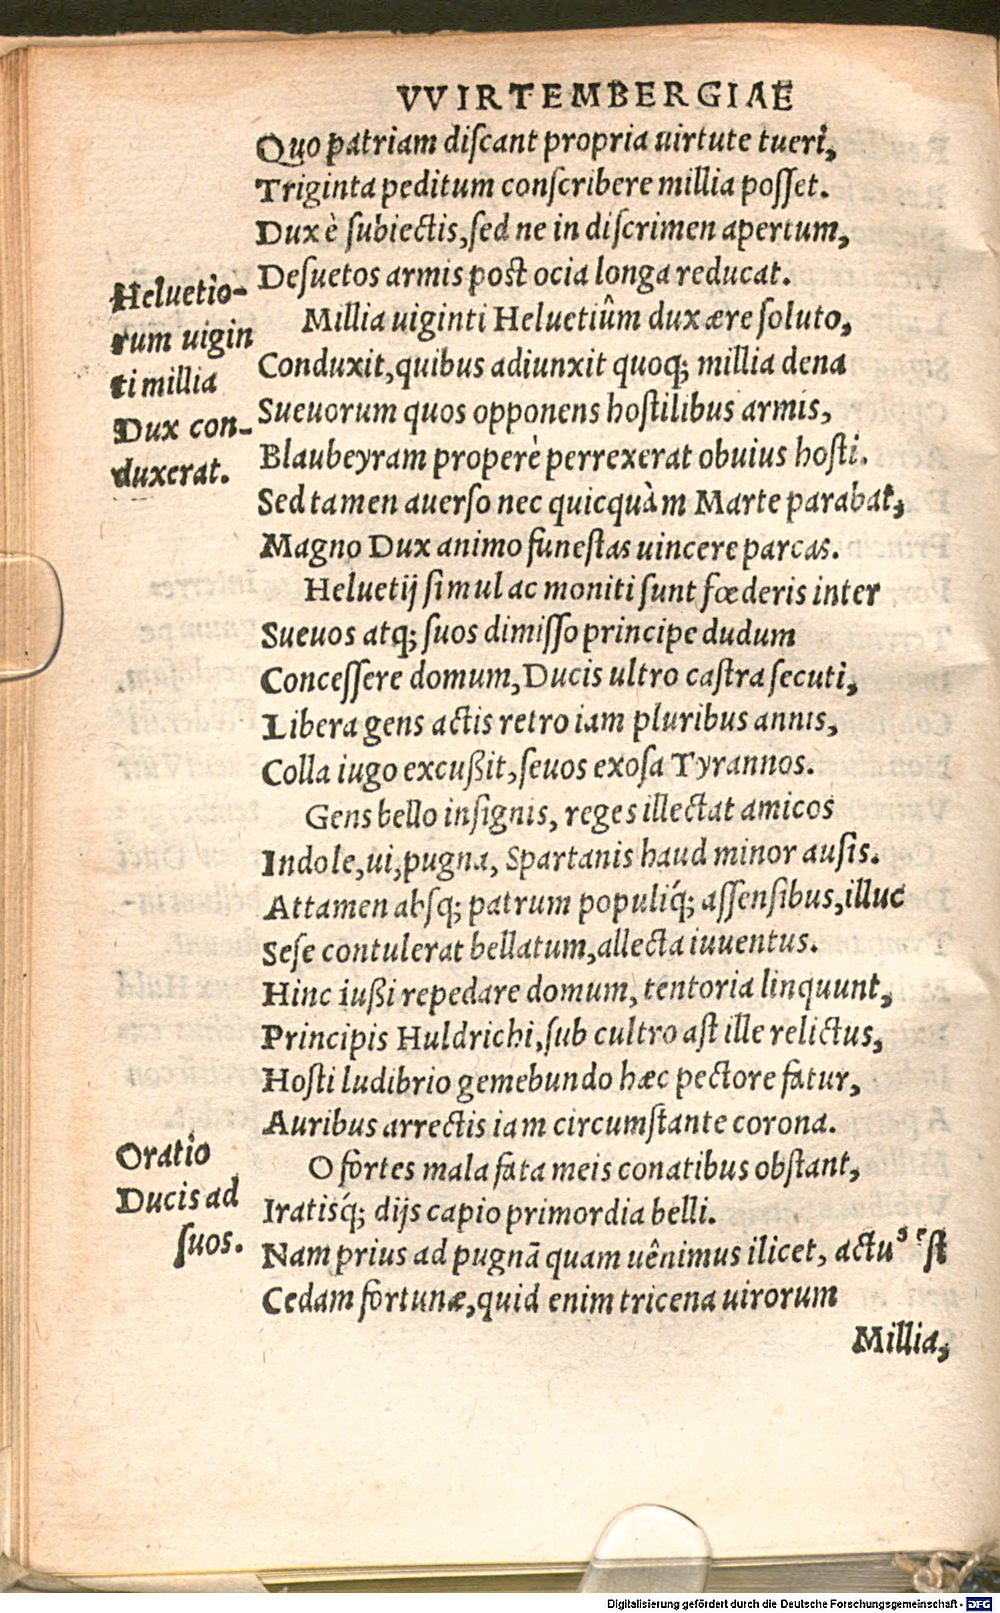 VVIRTEMBERGIAE
Quo patriam diſcant propria uirtute tueri,
Triginta peditum conſcribere millia poſſet.
Dux è ſubiectis, ſed ne in diſcrimen apertum,
Deſuetos armis poſt ocia longa reducat.
Heluetio-
rum uigin
ti millia
Dux con-
duxerat.
Millia uiginti Heluetiûm dux ære ſoluto,
Conduxit, quibus adiunxit quoq; millia dena
Sueuorum quos opponens hoſtilibus armis,
Blaubeyram properè perrexerat obuius hoſti.
Sed tamen auerſo nec quicquàm Marte parabat,
Magno Dux animo funeſtas uincere parcas.
Heluetij ſimul ac moniti ſunt fœderis inter
Sueuos atq; ſuos dimiſſo principe dudum
Conceſſere domum, Ducis ultro caſtra ſecuti,
Libera gens actis retro iam pluribus annis,
Colla iugo excußit, ſeuos exoſa Tyrannos.
Gens bello inſignis, reges illectat amicos
Indole, ui, pugna, Spartanis haud minor auſis.
Attamen abſq; patrum populiq́; aſſenſibus, illuc
Seſe contulerat bellatum, allecta iuuentus.
Hinc iußi repedare domum, tentoria linquunt,
Principis Huldrichi, ſub cultro aſt ille relictus,
Hoſti ludibrio gemebundo hæc pectore fatur,
Auribus arrectis iam circumſtante corona.
Oratio
Ducis ad
ſuos.
O fortes mala fata meis conatibus obſtant,
Iratisq́; dijs capio primordia belli.
Nam prius ad pugnã quam uênimus ilicet, actus eſt
Cedam fortunæ, quid enim tricena uirorum
Millia,
Digitalisierung gefördert durch die Deutsche Forschungsgemeinschaft - DFG